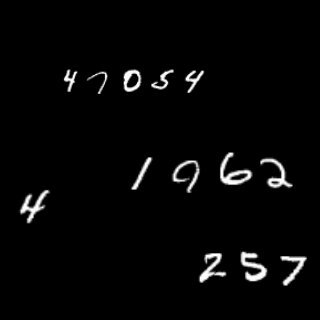 47054
1962
4
257